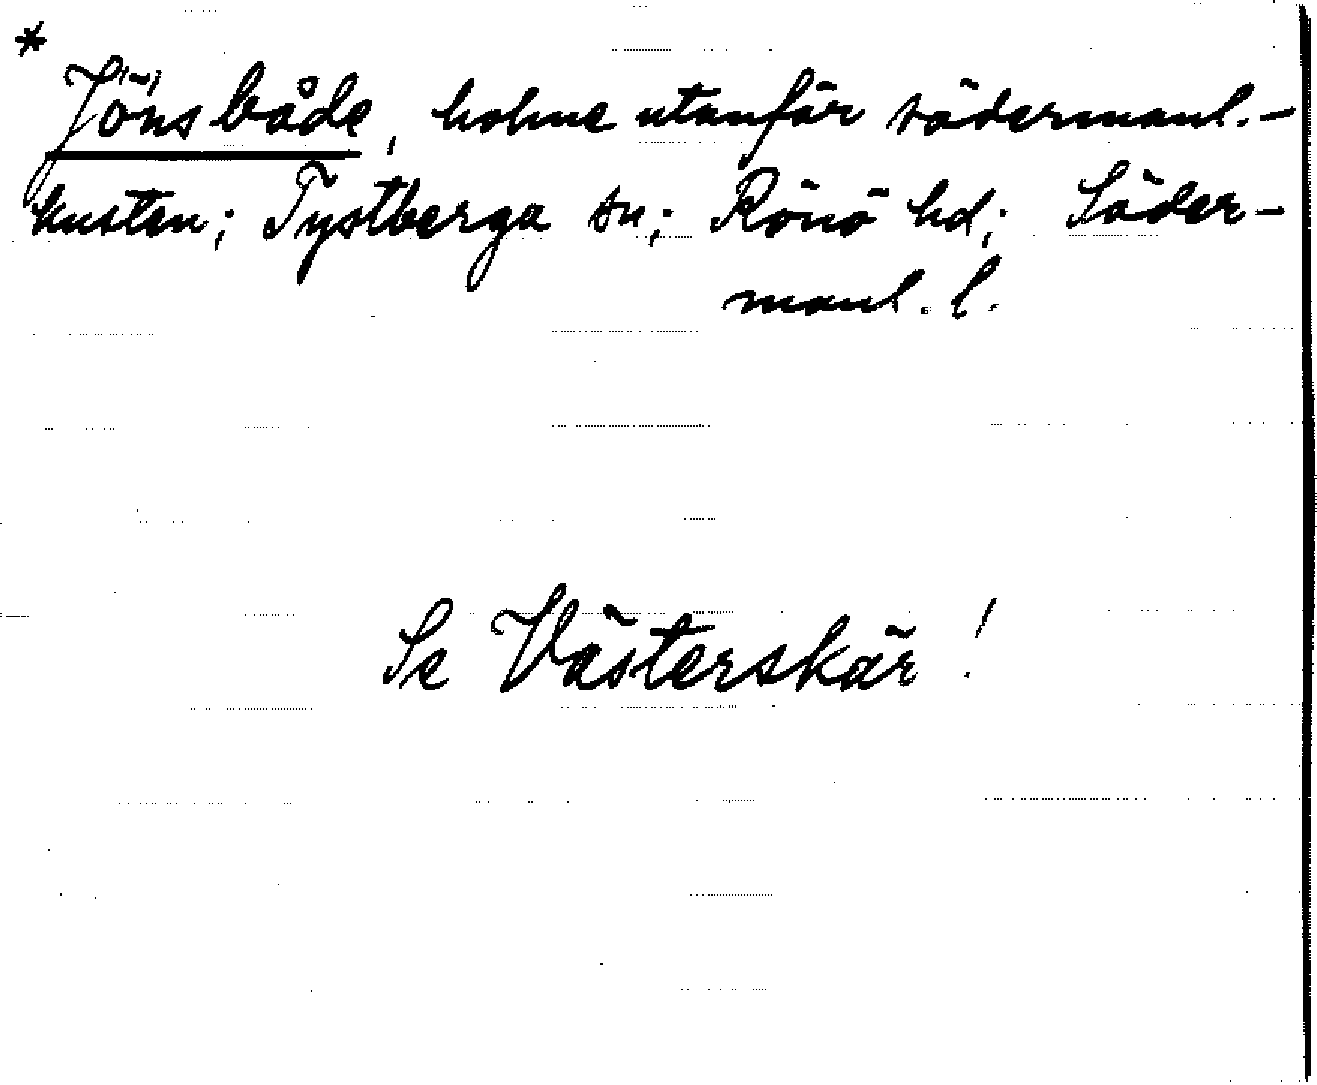 * Jönsbåde, holme utanför södermanl.-
kusten; Tystberga sn; Rönö hd; Söder-
manl. l.
Se Västerskär!